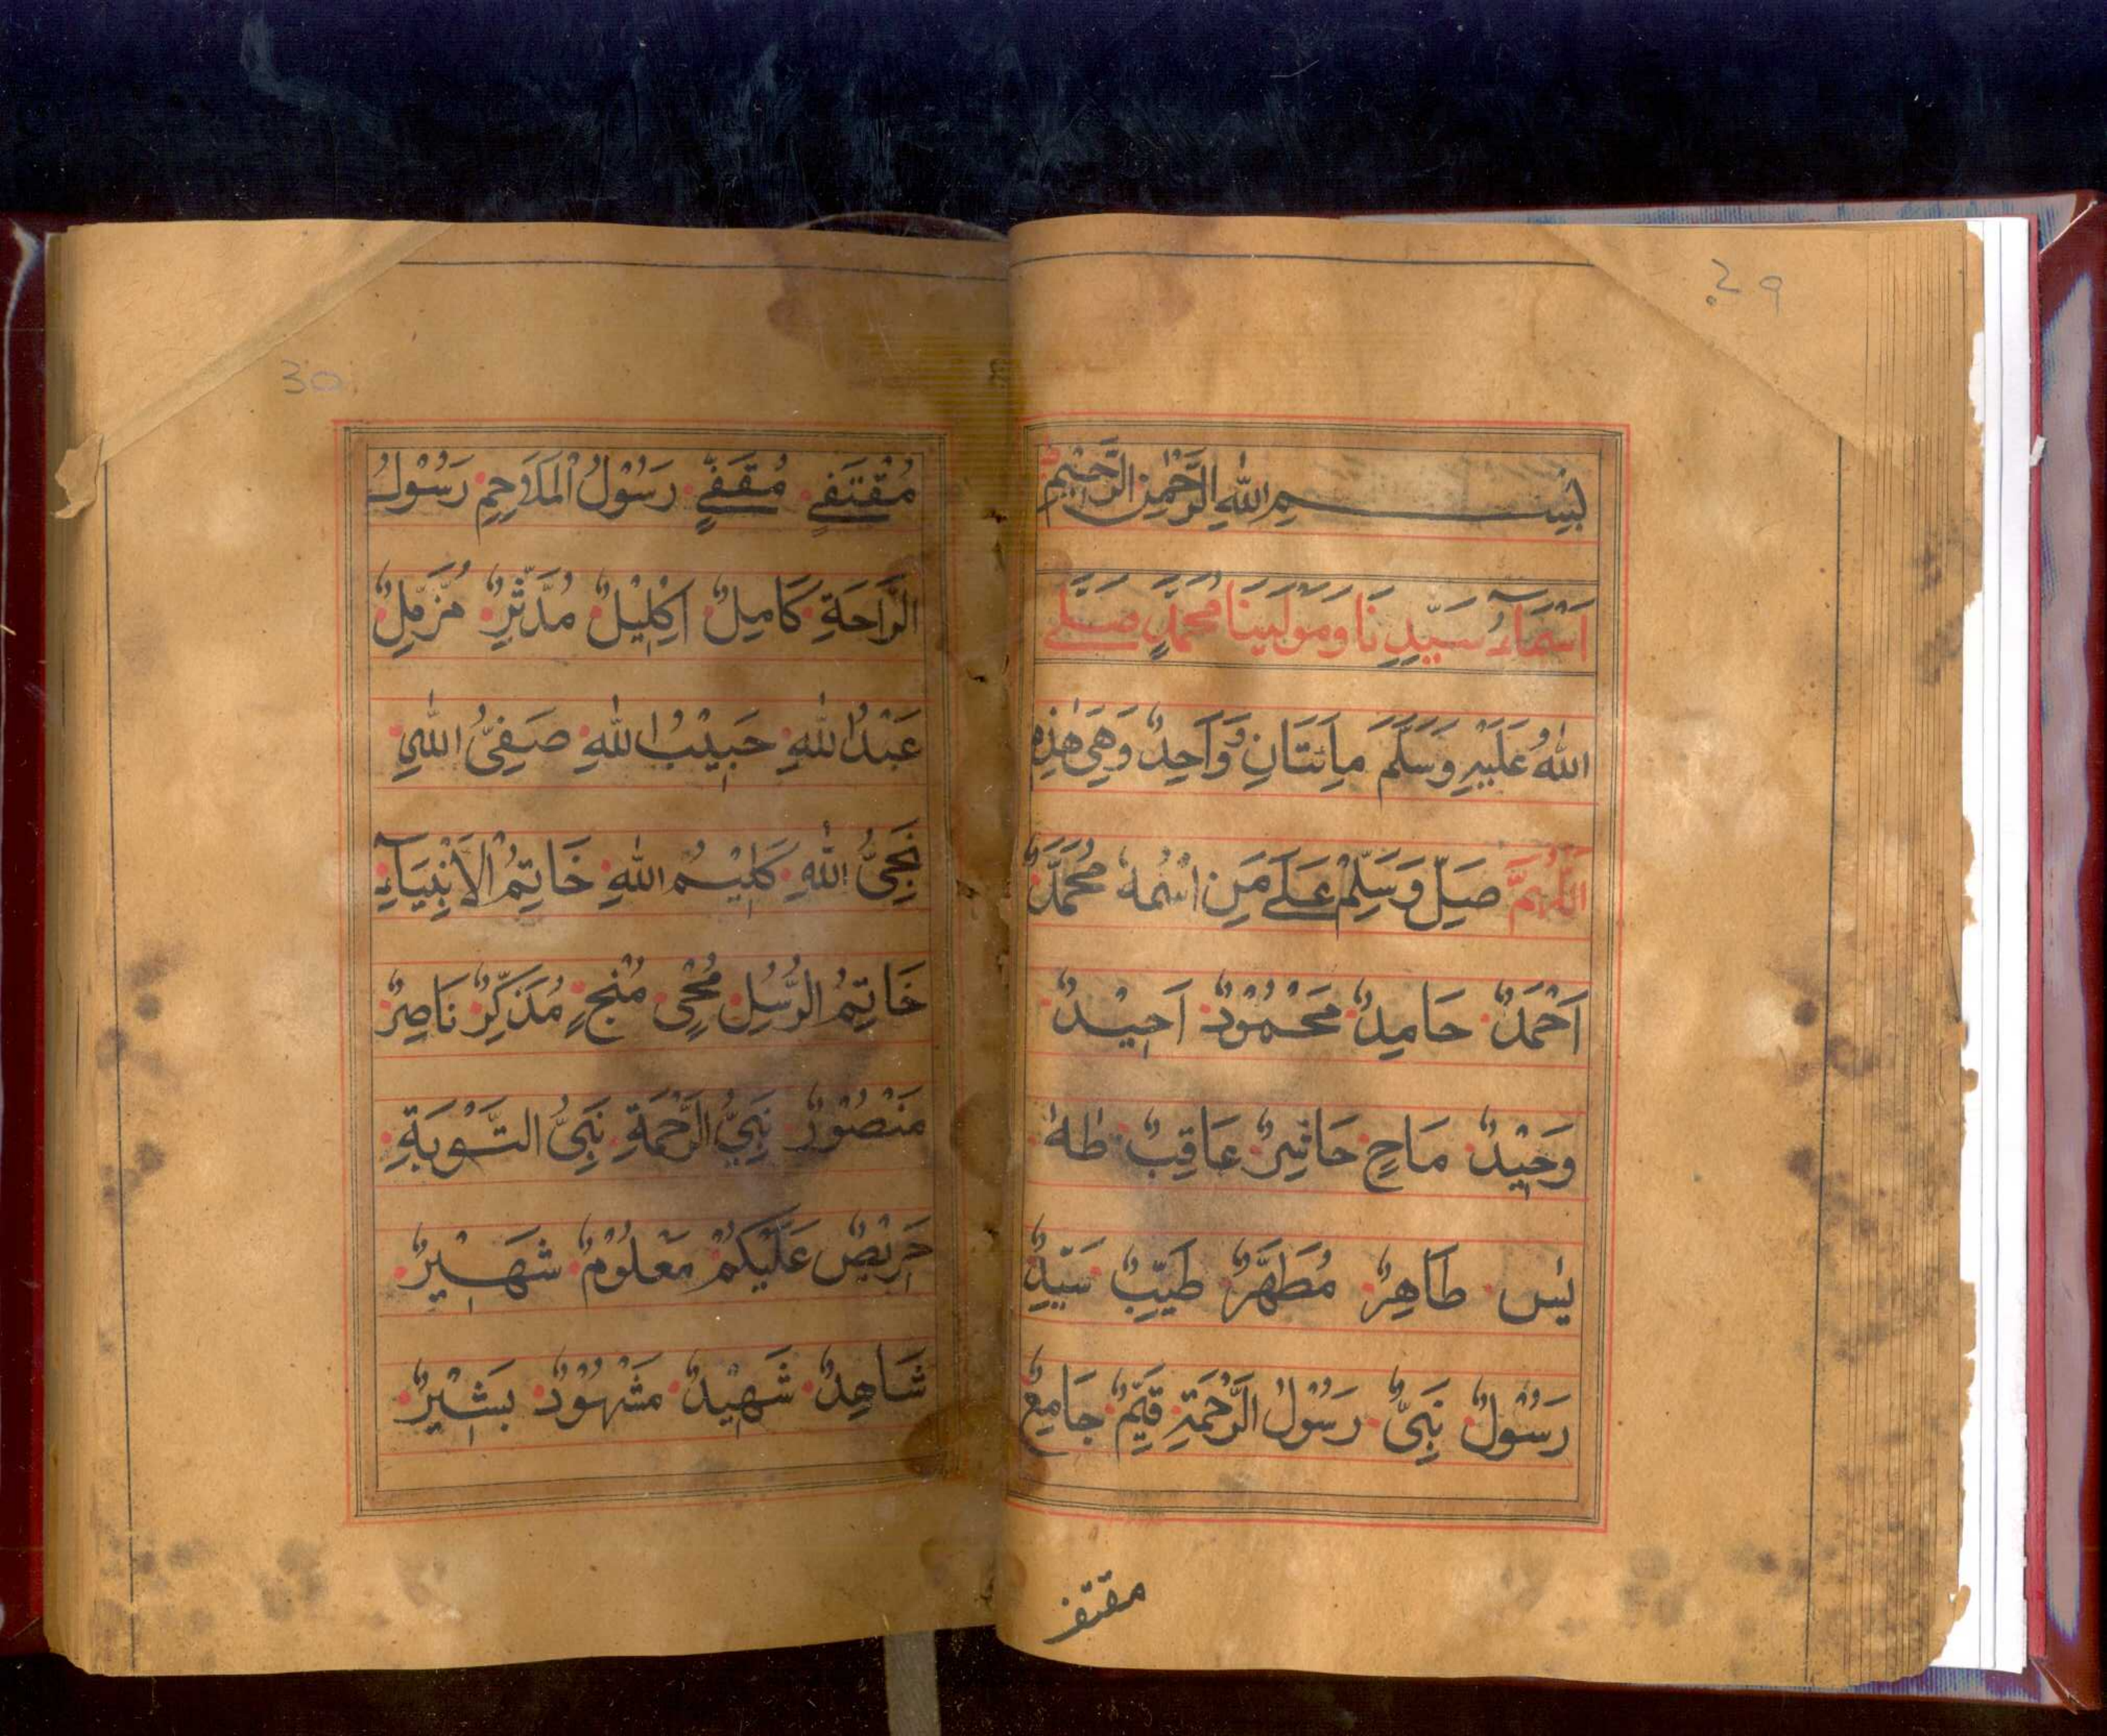 29
بِسْمِ اللهِ الرَّحْمٰنِ الرَّحِيْمِ
اَسْمَآءُ سَيِّدِنَا وَمَوْلَيْنَا مُحَمَّدٍ صَلَّے
اللهُ عَلَيْهِ وَسَلَّمَ مِأَئَتَانِ وَّوَاحِدٌ وَهِيَ هٰذِهٖ
اَللّٰهُمَّ صَلِّ وَسَلِّمْ عَلٰے مَنِ اسْمُهٗ مُحَمَّدٌ
اَحْمَدٌ حَامِدٌ مَحْمُوْدٌ اَحِيْدٌ
وَحِيْدٌ مَاحٍ حَاشِرٌ عَاقِبٌ طٰهٰ
يٰس طَاهِرٌ مُطَهَّرٌ طَيِّبٌ سَيِّدٌ
رَسُوْلٌ نَبِیٌّ رَسُوْلُ الرَّحْمَةِ قَيِّمٌ جَامِعٌ
مقتف
30
مُقْتَفٍے مُقَفٍّے رَسُوْلُ الْمَلَاحِمِ رَسُوْلُ
الرَّاحَةِ كَامِلٌ اِكْلِيْلٌ مُدَّثِّرٌ مُزَّمِّلٌ
عَبْدُ اللهِ حَبِيْبُ اللهِ صَفِیُّ اللهِ
نَجِیُّ اللهِ كَلِيْمُ اللهِ خَاتِمُ الْاَنْبِيَآءِ
خَاتِمُ الرُّسُلِ مُحْیٍ مُنْجٍ مُذَكِّرٌ نَاصِرٌ
مَنْصُوْرٌ نَبِیُّ الرَّحْمَةِ نَبِیُّ التَّوْبَةِ
حَرِيْصٌ عَلَيْكُمْ مَعْلُوْمٌ شَهِيْرٌ
شَاهِدٌ شَهِيْدٌ مَشْهُوْدٌ بَشِيْرٌ